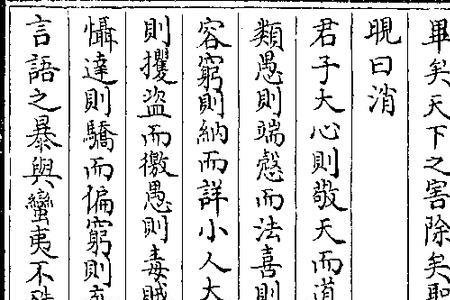 畢矣天下之害除矣聖
晛曰消
君子大心則敬天而道
類愚則端愨而法喜則
容窮則納而詳小人大
則攫盜而徼愚則毒賊
懾達則驕而偏窮則
言語之暴與蠻夷不殊